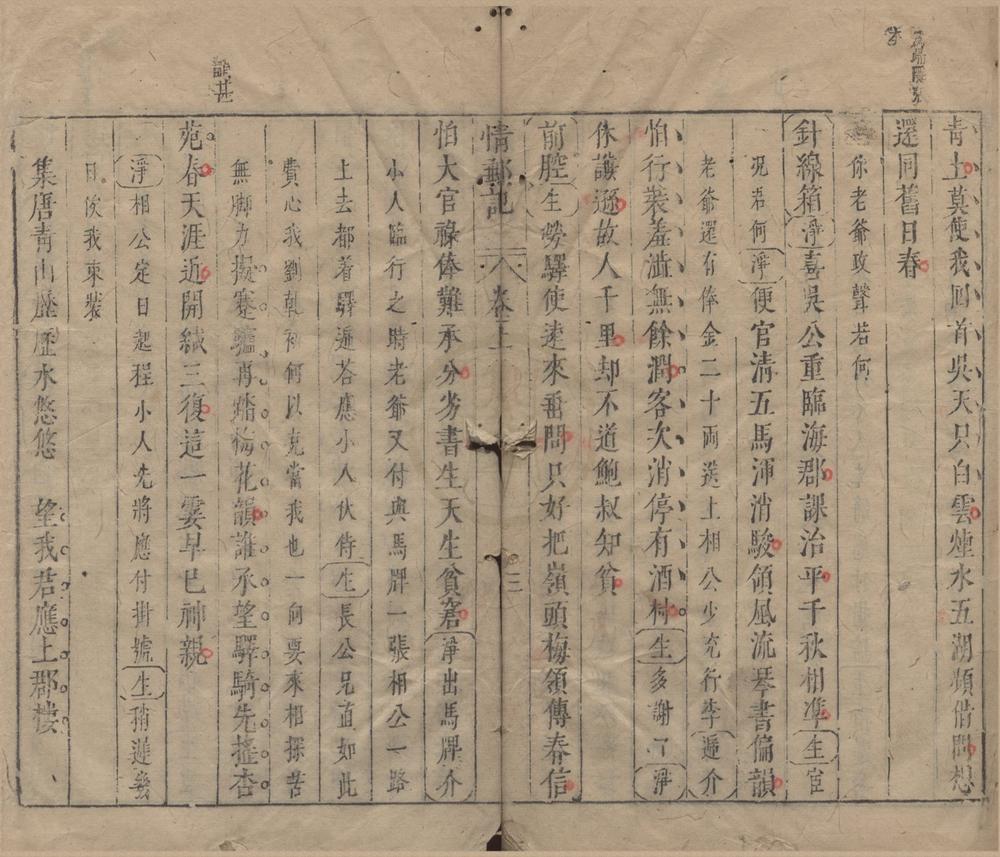 青土莫使我回首吳天只白雲煙水五湖頻借問想
還同舊日春
你老爺政聲若何
針線箱淨喜吳公重臨海郡課治平千秋相準生宦
况若何淨便官清五馬渾消駿領風流琴書偏韻
老爺還有俸金二十両送上相公少充行李遞介
怕行裝羞澁無餘潤客次消停有酒村生多謝了淨
休謙遜故人千里却不道鮑叔知貧
前腔生勞驛使遠來垂問只好把嶺頭梅領傳春信
情郵記
卷上
三
怕大官祿俸難承分劣書生天生貧窘淨出馬牌介
小人臨行之時老爺又付與馬牌一張相公一路
上去都着驛遞荅應小人伏侍生長公兄直如此
費心我劉乾初何以克當我也一向要來相探苦
無脚力擬蹇驢再踏梅花韻誰承望驛騎先搖杏
苑春天涯近開緘三復這一霎早已神親
淨相公定日起程小人先將應付掛號生稍遲幾
日俟我束裝
集唐青山歷歷水悠悠
望我君應上郡樓